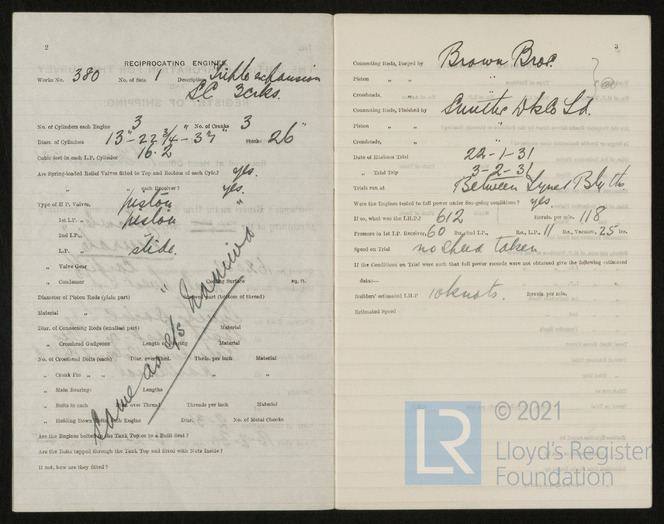 2
RECIPROCATING ENGINES
Works No. 380 No. of Sets 1 Description Triple expansion
SC 3 crks.
No. of Cylinders each Engine 3 No. of Cranks 3
Diars. of Cylinders 13" - 22 3/4 - 37" Stroke 26"
Cubic feet in each L.P. Cylinder 16.2
Are Spring-loaded Relief Valves fitted to Top and Bottom of each Cylr.? yes.
" " each Receiver? yes.
Type of H.P. Valves, piston
1st I.P. " piston "
2nd I.P. "
L.P. " slide.
" Valve Gear "
" Condenser Cooling Surface sq. ft.
Diameter of Piston Rods (plain part) Screwed part (bottom of thread)
Material "
Diar. of Connecting Rods (smallest part) Material
" Crosshead Gudgeons Length of Bearing Material
No. of Crosshead Bolts (each) Diar. over Thrd. Thrds. per inch Material
" Crank Pin " " " " "
" Main Bearings Lengths
" Bolts in each Diar. over Thread Threads per inch Material
" Holding Down Bolts, each Engine Diar. No. of Metal Chocks
Are the Engines bolted to the Tank Top or to a Built Seat?
Are the Bolts tapped through the Tank Top and fitted with Nuts Inside?
If not, how are they fitted?
Same as s/s
3
Connecting Rods, Forged by Brown Bros
Piston " "
Crossheads, "
Connecting Rods, Finished by Smiths Dk Co Ld.
Piston " "
Crossheads, "
Date of Harbour Trial 22-1-31
" Trial Trip 3-2-31
Trials run at Between Tyne & Blyth
Were the Engines tested to full power under Sea-going conditions? yes.
If so, what was the I.H.P.? 612 Revols. per min. 118
Pressure in 1st I.P. Receiver, 60 lbs., 2nd I.P., lbs., L.P., 11 lbs., Vacuum, 25 ins.
Speed on Trial not taken
If the Conditions on Trial were such that full power records were not obtained give the following estimated
data:—
Builders' estimated I.H.P. Revols. per min.
Estimated Speed 10 knots.
LR
© 2021
Lloyd's Register
Foundation